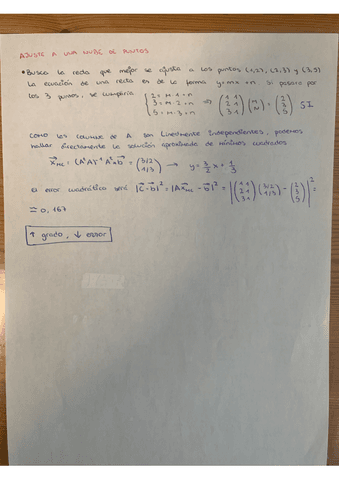 AJUSTE A UNA NUBE DE PUNTOS
• Busca la recta que mejor se ajusta a los puntos (1,2), (2,3) y (3,5)
La ecuación de una recta es de la forma y=mx+n. Si pasara por
los 3 puntos, se cumpliría { 2 = m·1+n 3 = m·2+n 5 = m·3+n ⇒ (1 1 2 1 3 1) (m n) = (2 3 5) SI
Como las columnas de A son linealmente independientes, podemos
hallar directamente la solución aproximada de mínimos cuadrados
x⃗MC = (AᵗA)⁻¹ Aᵗ·b⃗ = (3/2 1/3) → y = 3/2 x + 1/3
El error cuadrático será |c⃗-b⃗|² = |Ax⃗MC - b⃗|² = |(1 1 2 1 3 1) (3/2 1/3) - (2 3 5)|² =
= 0,167
↑ grado, ↓ error